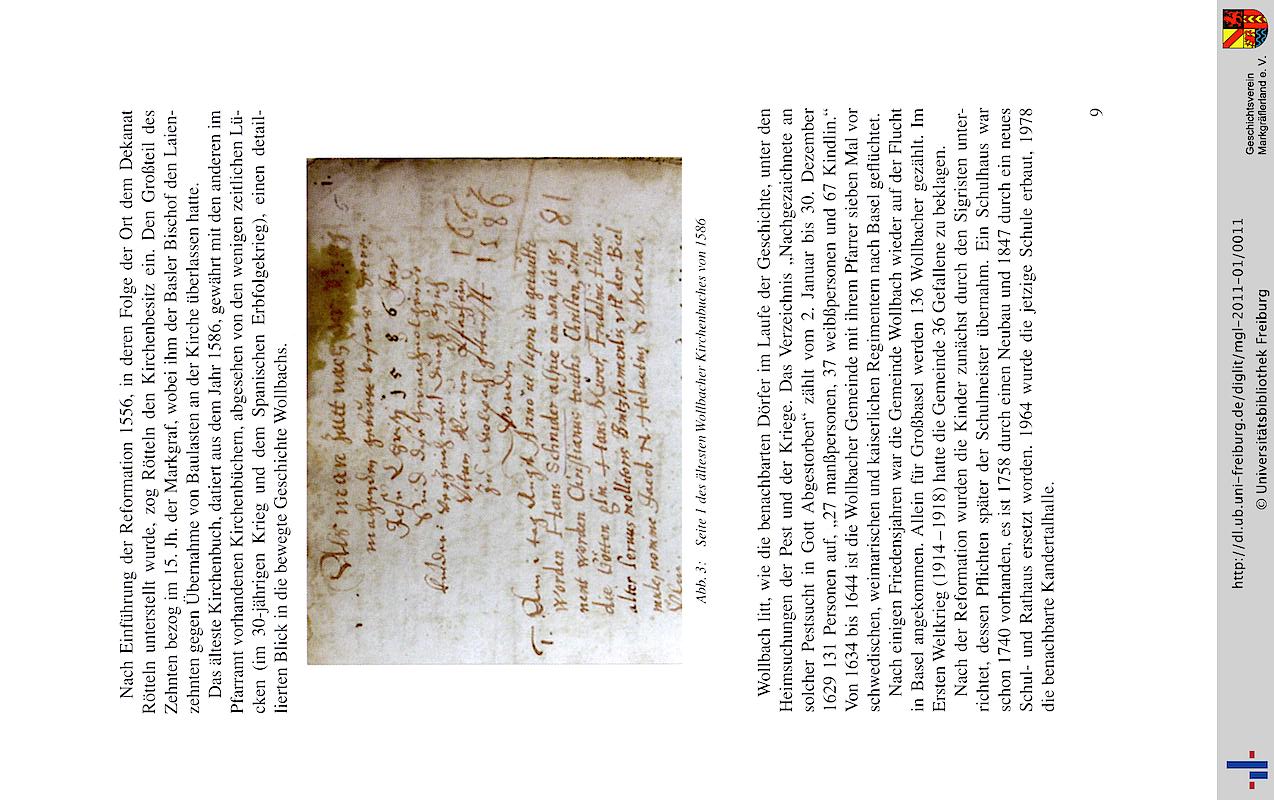 Nach Einführung der Reformation 1556, in deren Folge der Ort dem Dekanat
Rötteln unterstellt wurde, zog Rötteln den Kirchenbesitz ein. Den Großteil des
Zehnten bezog im 15. Jh. der Markgraf, wobei ihm der Basler Bischof den Laien-
zehnten gegen Übernahme von Baulasten an der Kirche überlassen hatte.
Das älteste Kirchenbuch, datiert aus dem Jahr 1586, gewährt mit den anderen im
Pfarramt vorhandenen Kirchenbüchern, abgesehen von den wenigen zeitlichen Lü-
cken (im 30-jährigen Krieg und dem Spanischen Erbfolgekrieg), einen detail-
lierten Blick in die bewegte Geschichte Wollbachs.
1.
1 5 8 6
1586
81
Worden Hans Schnider
Jacob
Maria.
Abb. 3: Seite 1 des ältesten Wollbacher Kirchenbuches von 1586
Wollbach litt, wie die benachbarten Dörfer im Laufe der Geschichte, unter den
Heimsuchungen der Pest und der Kriege. Das Verzeichnis „Nachgezeichnete an
solcher Pestsucht in Gott Abgestorben“ zählt vom 2. Januar bis 30. Dezember
1629 131 Personen auf, „27 manßpersonen, 37 weibßpersonen und 67 Kindlin.“
Von 1634 bis 1644 ist die Wollbacher Gemeinde mit ihrem Pfarrer sieben Mal vor
schwedischen, weimarischen und kaiserlichen Regimentern nach Basel geflüchtet.
Nach einigen Friedensjahren war die Gemeinde Wollbach wieder auf der Flucht
in Basel angekommen. Allein für Großbasel werden 136 Wollbacher gezählt. Im
Ersten Weltkrieg (1914 – 1918) hatte die Gemeinde 36 Gefallene zu beklagen.
Nach der Reformation wurden die Kinder zunächst durch den Sigristen unter-
richtet, dessen Pflichten später der Schulmeister übernahm. Ein Schulhaus war
schon 1740 vorhanden, es ist 1758 durch einen Neubau und 1847 durch ein neues
Schul- und Rathaus ersetzt worden. 1964 wurde die jetzige Schule erbaut, 1978
die benachbarte Kandertalhalle.
9
http://dl.ub.uni-freiburg.de/diglit/mgl-2011-01/0011
© Universitätsbibliothek Freiburg
Geschichtsverein
Markgräflerland e. V.